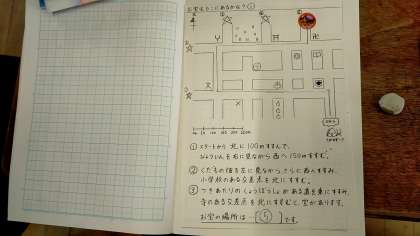 お宝はどこにあるかな?
文
① スタートから 北に 100mすすんで、
びょういんを右に見ながら 西へ 150mすすむ。
② くだもの畑を左に見ながら さらに西へすすみ
小学校のある交差点を北にすすむ。
③ つきあたりの しょうぼうしょがある道を東にすすみ
寺のある交差点を北にすすむと、宝があります。
お宝の場所は ⑤ です。